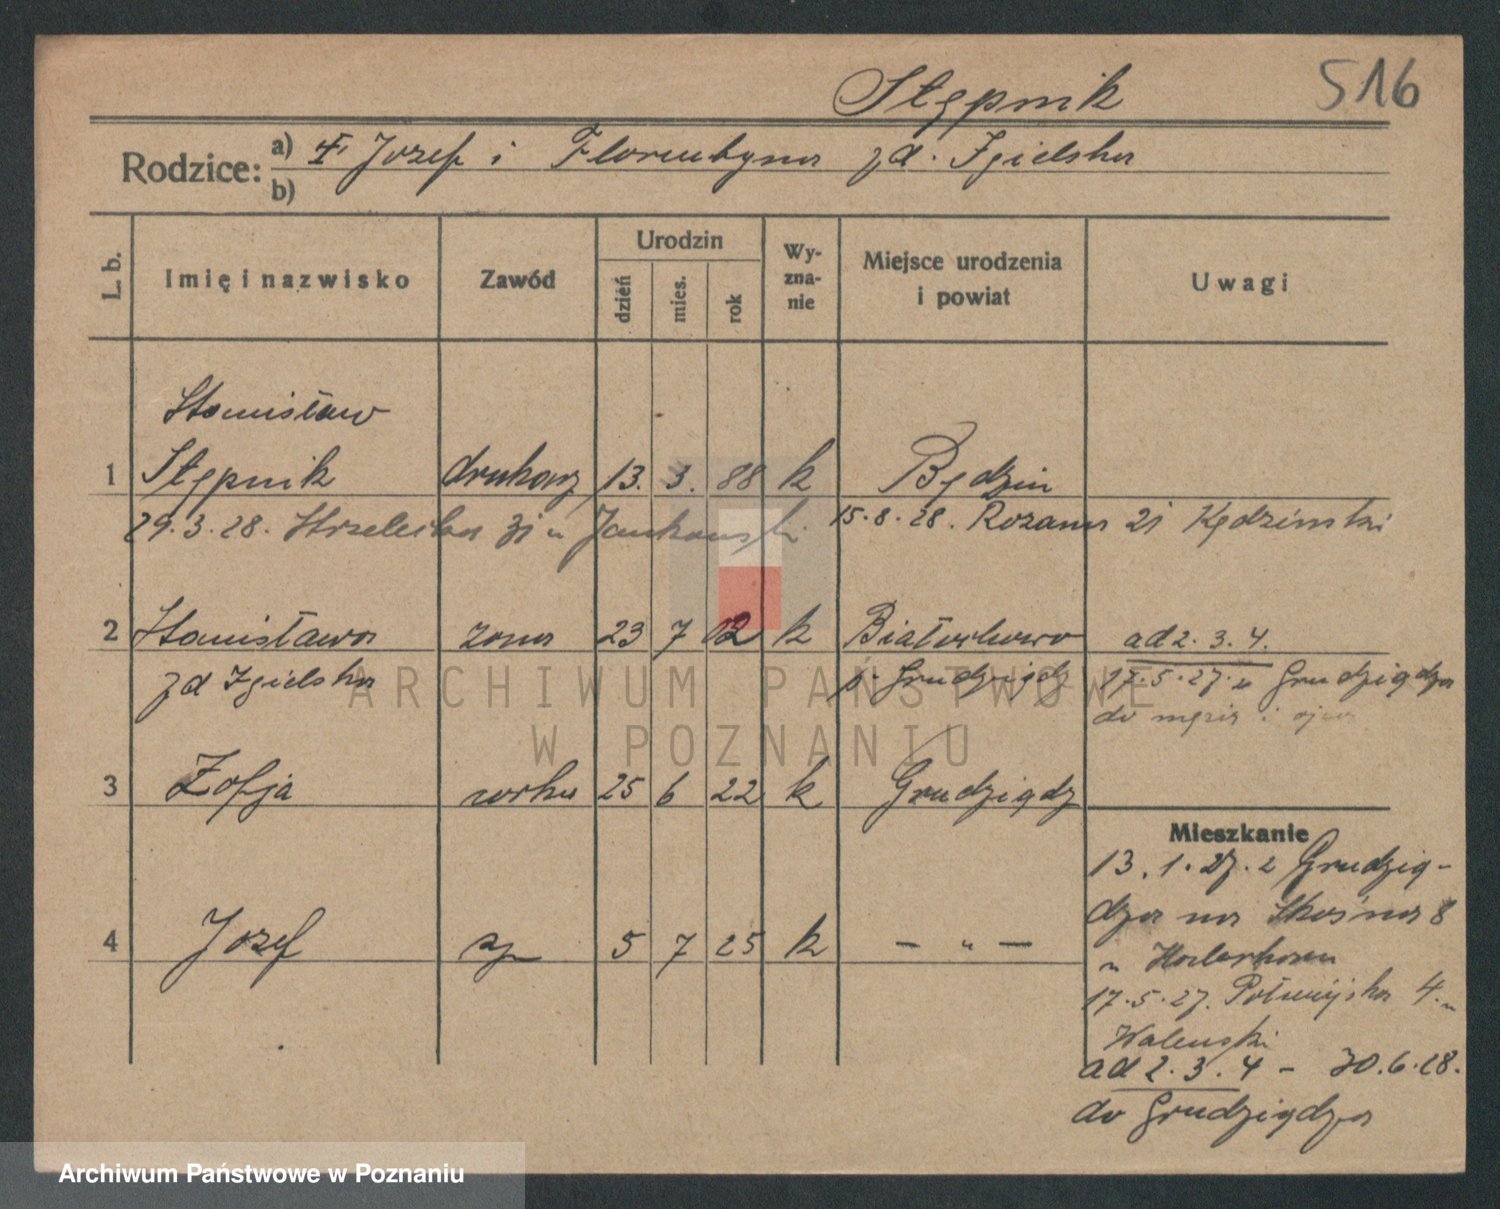 Stępnik
516
Rodzice: a) Józef i Florentyna zd. Igielska
b)
L. b.
Imię i nazwisko
Zawód
Urodzin
dzień
mies.
rok
Wy-
zna-
nie
Miejsce urodzenia
i powiat
Uwagi
Stanisław
1 Stępnik drukarz 13. 3. 88 k Będzin
29.3.28. Strzelecka 31 u Jankowski 15.8.28. Różana 21 Kędzinski
2 Stanisława żona 23 7 02 k Białochowo ad 2. 3. 4.
zd Igielska p. Grudziądz 17.5.27. z Grudziądza
do męża i ojca
3 Zofja córka 25 6 22 k Grudziądz
Mieszkanie
13.1.27. z Grudzią-
dza na Skośna 8
4 Józef syn 5 7 25 k — " —
u
17.5.27. Półwiejska 4. u
Walenski
ad 2. 3. 4 - 30.6.28.
do Grudziądza
ARCHIWUM PAŃSTWOWE
W POZNANIU
Archiwum Państwowe w Poznaniu